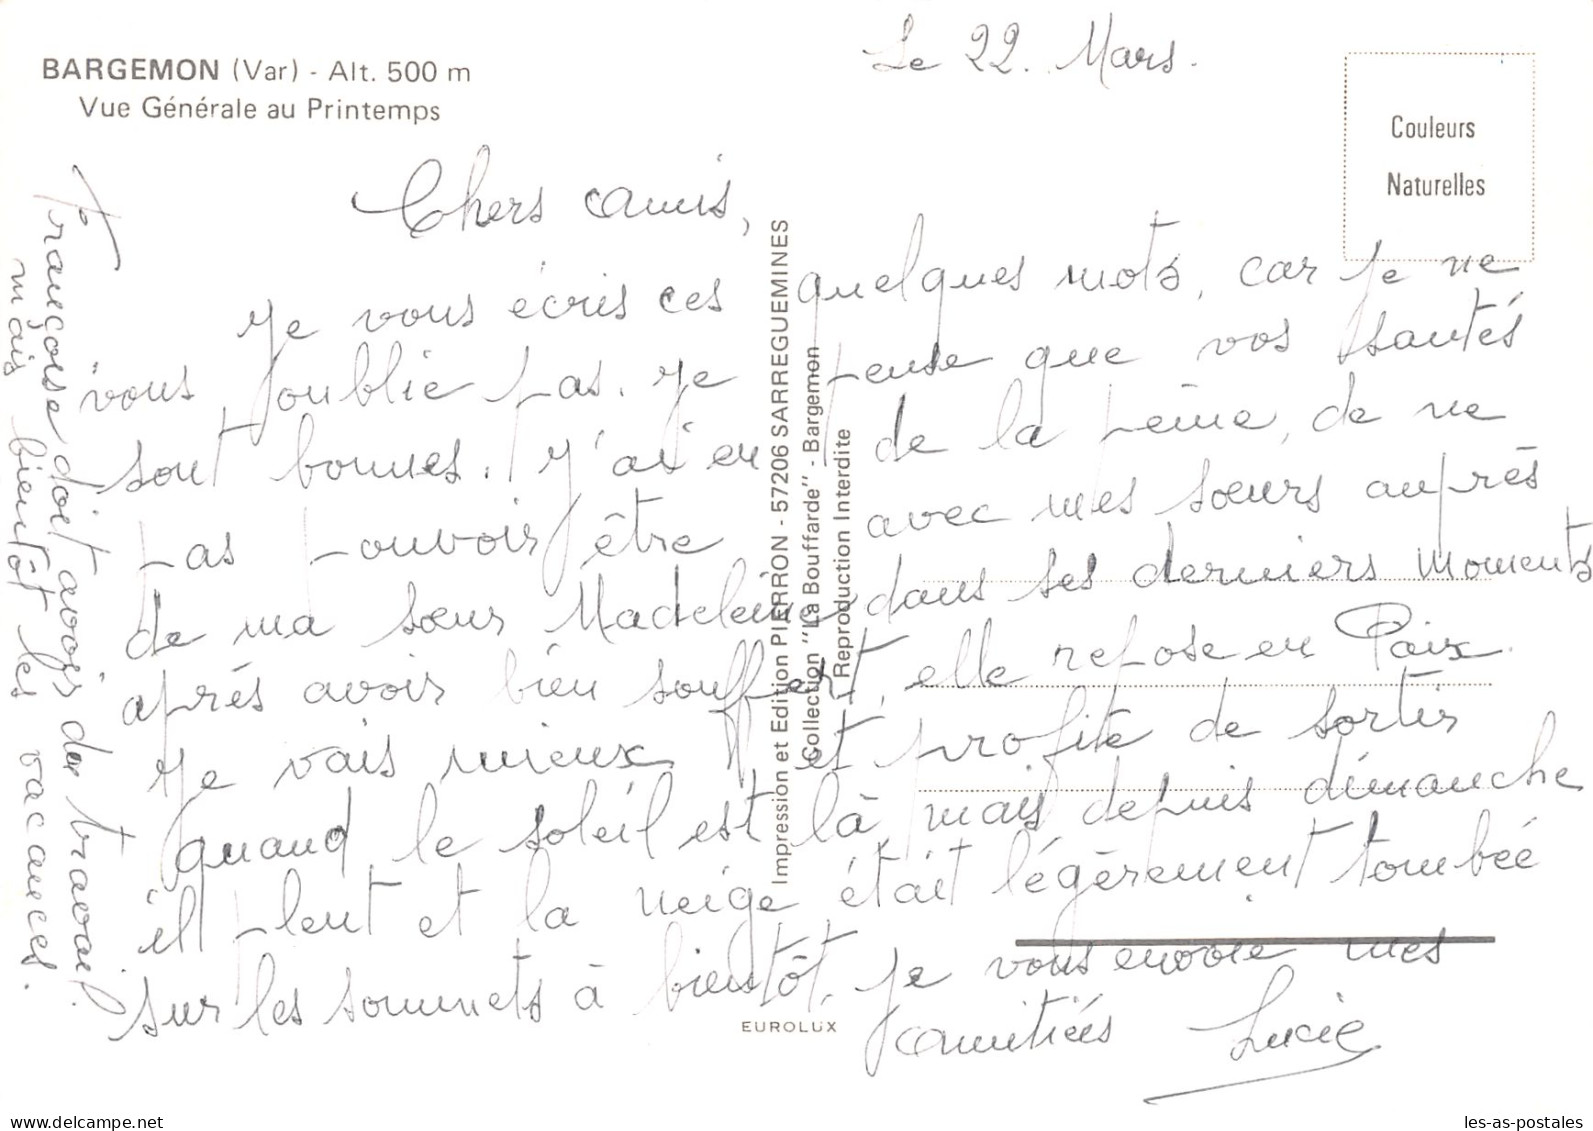 BARGEMON (Var) - Alt. 500 m
Vue Générale au Printemps
Le 22. Mars.
Couleurs
Naturelles
Chers amis,
Je vous écris ces quelques mots, car je ne
vous oublie pas. Je pense que vos santés
sont bonnes. J'ai eu de la peine, de ne
pas pouvoir être avec mes sœurs auprès
de ma sœur Madeleine dans ses derniers moments
aprés avoir bien souffert, elle repose en Paix.
Je vais mieux et profite de sortir
quand le soleil est là, mais depuis dimanche
il pleut et la neige était légèrement tombée
sur les sommets à bientôt, je vous envoie mes
amitiés Lucie
Françoise doit avoir du travail
mais bientôt les vacances.
Impression et Edition PIERRON - 57206 SARREGUEMINES
Collection "La Bouffarde" - Bargemon
Reproduction Interdite
EUROLUX
les-as-postales
delcampe.net